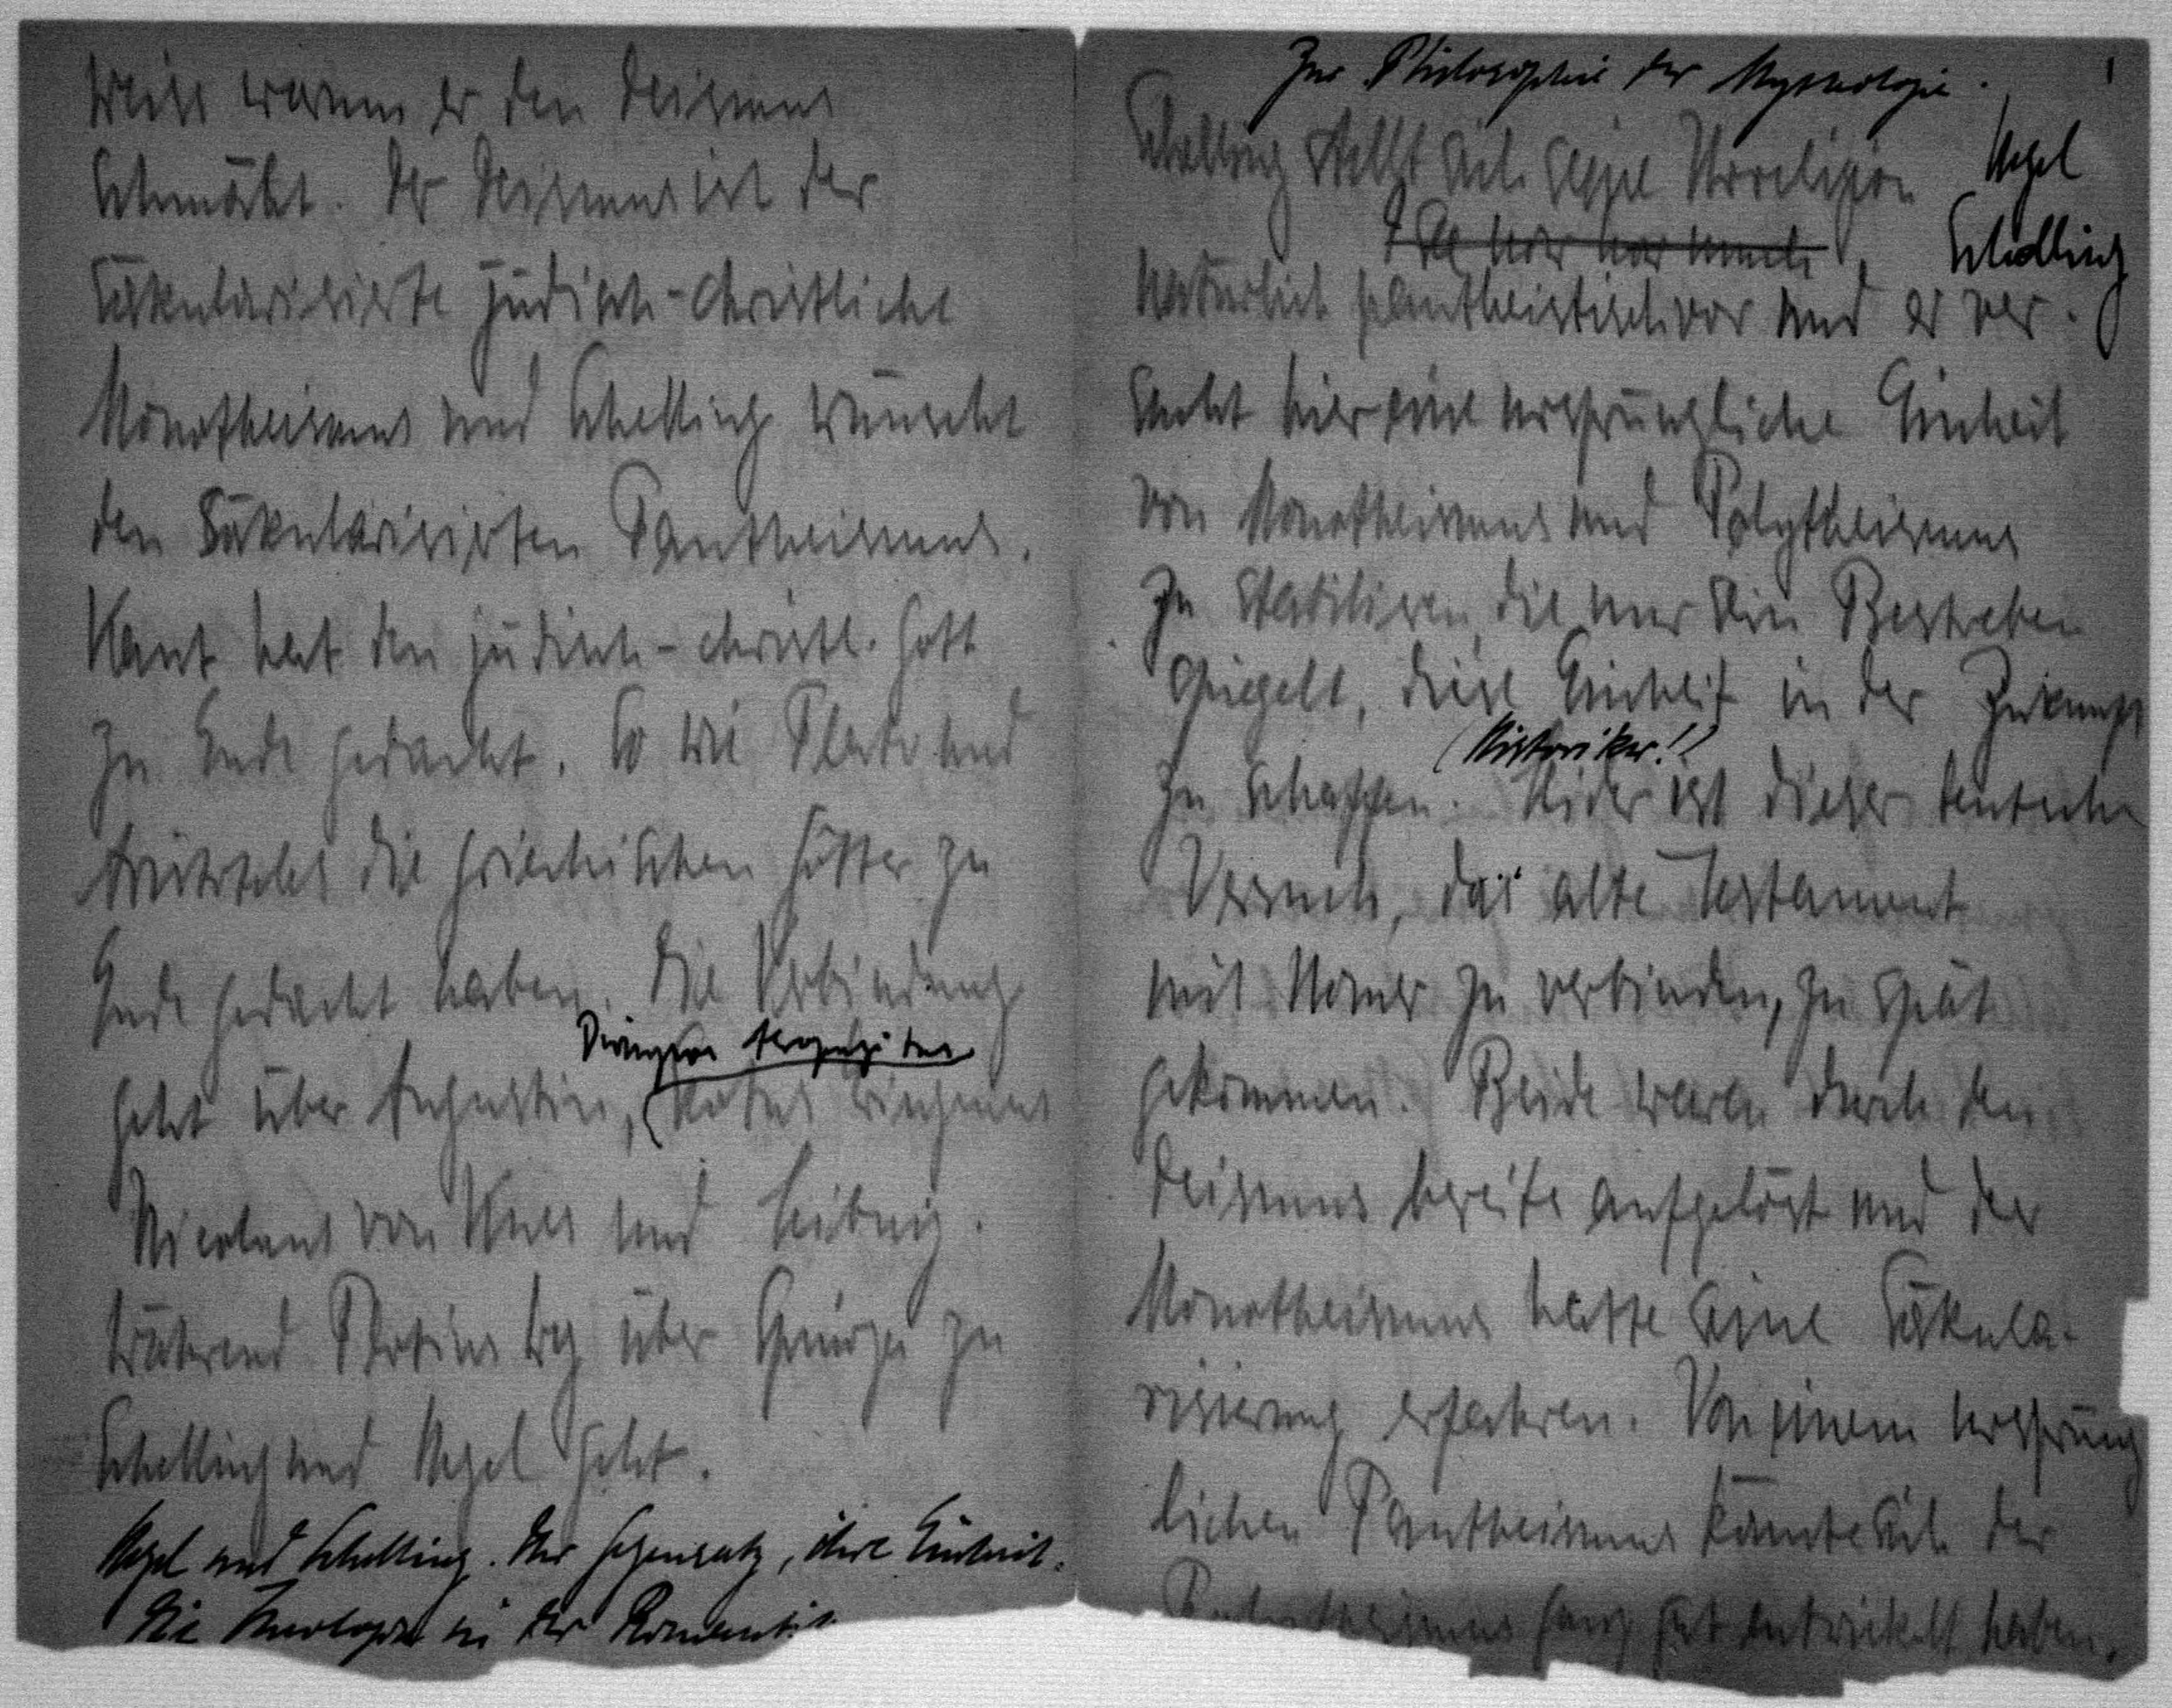 weiss warum er den Deismus
schmäht. Der Deismus ist der
säkularisierte jüdisch-christliche
Monotheismus und Schelling wünscht
den säkularisierten Pantheismus.
Kant hat den jüdisch-christl. Gott
zu Ende gedacht. So wie Plato und
Aristoteles die griechischen Götter zu
Ende gedacht haben. Die Verbindung
Dionysius Areopagitas
geht über Augustin,
Nicolaus von Kues und Leibniz.
Während Plotins Weg über Spinoza zu
Schelling und Hegel geht.
Hegel und Schelling. Ihr Gegensatz, ihre Einheit.
Die Theologie in der Romantik
Zur Philosophie der Mythologie.
1
Schelling stellt sich seine Urreligion
Hegel
Schelling
natürlich pantheistisch vor und er ver-
sucht hier eine ursprüngliche Einheit
von Monotheismus und Polytheismus
zu stabilisren, die nur sein Bestreben
spiegelt, diese Einheit in der Zukunft
(Historiker!)
zu schaffen. Leider ist dieser deutsche
Versuch, das alte Testament
mit Homer zu verbinden, zu spät
gekommen. Beide waren durch den
Deismus bereits aufgelöst und der
Monotheismus hatte seine Säkula-
risierung erfahren. Von einem ursprüng
lichen Pantheismus könnte sich der
Polytheismus ganz gut entwickelt haben.